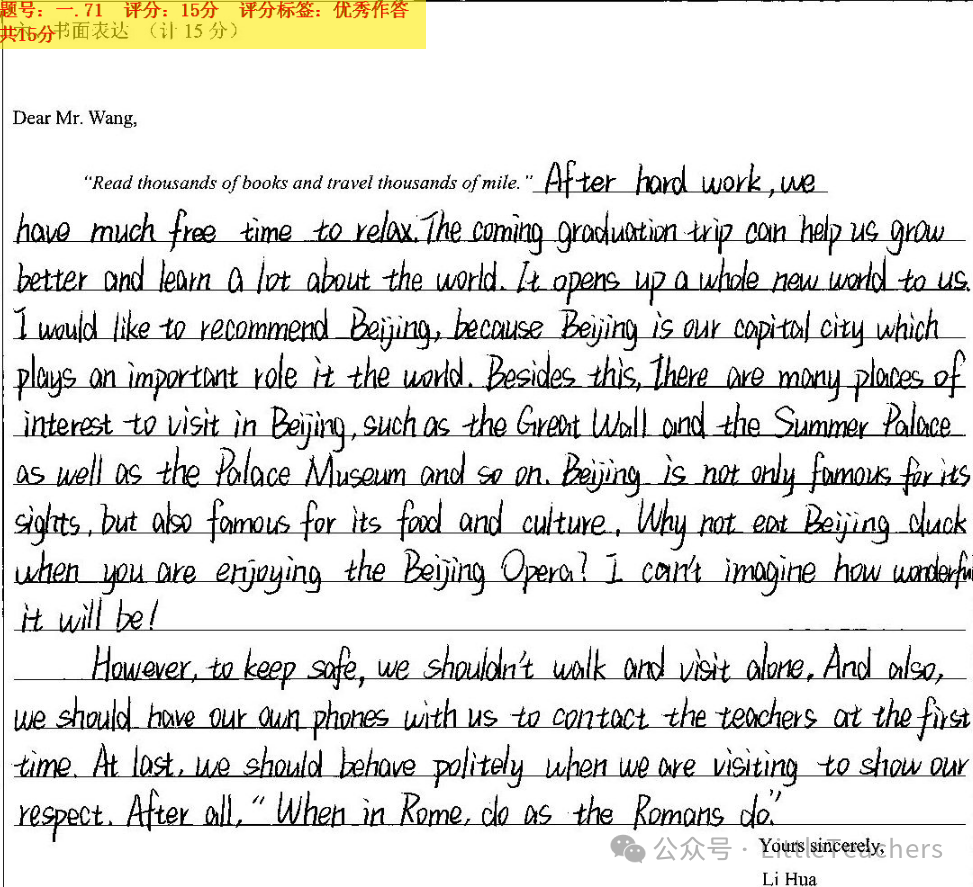 题号：一.71 评分：15分 评分标签：优秀作答
共15分 书面表达 （计 15 分）
Dear Mr. Wang,
“Read thousands of books and travel thousands of mile.” After hard work, we
have much free time to relax. The coming graduation trip can help us grow
better and learn a lot about the world. It opens up a whole new world to us.
I would like to recommend Beijing, because Beijing is our capital city which
plays an important role it the world. Besides this, There are many places of
interest to visit in Beijing, such as the Great Wall and the Summer Palace
as well as the Palace Museum and so on. Beijing is not only famous for its
sights, but also famous for its food and culture. Why not eat Beijing duck
when you are enjoying the Beijing Opera? I can't imagine how wonderful
it will be!
However, to keep safe, we shouldn't walk and visit alone. And also,
we should have our own phones with us to contact the teachers at the first
time. At last, we should behave politely when we are visiting to show our
respect. After all, “When in Rome, do as the Romans do.”
Yours sincerely,
公众号 · LittleTeachers
Li Hua